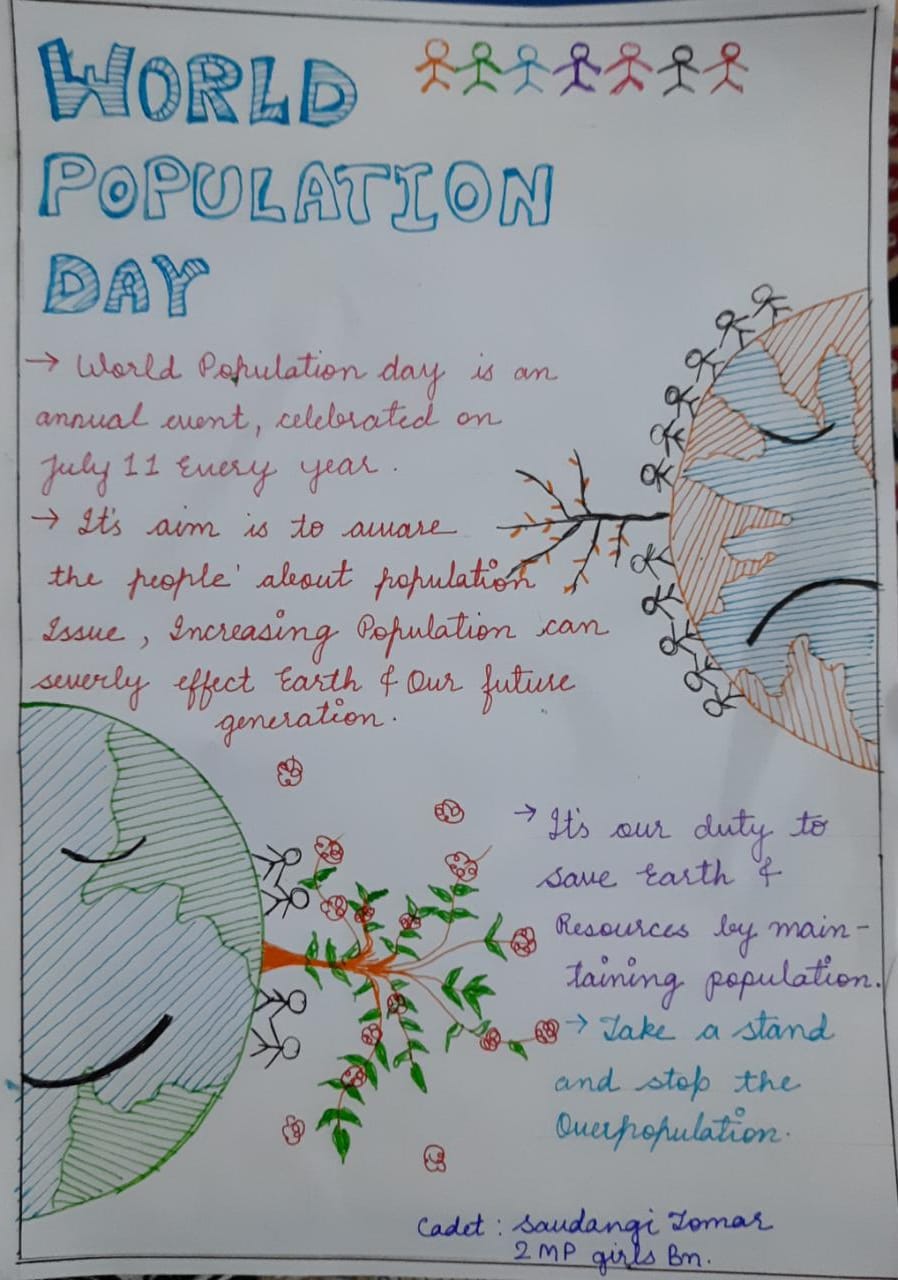 WORLD
POPULATION
DAY
→ World Population day is an
annual event, celebrated on
July 11 Every year.
→ It's aim is to aware
the people' about population
Issue, Increasing Population can
severly effect Earth & Our future
generation.
→ It's our duty to
save Earth &
Resources by main-
taining population.
→ Take a stand
and stop the
Overpopulation.
Cadet : Saudangi Tomar
2 MP girls Bn.